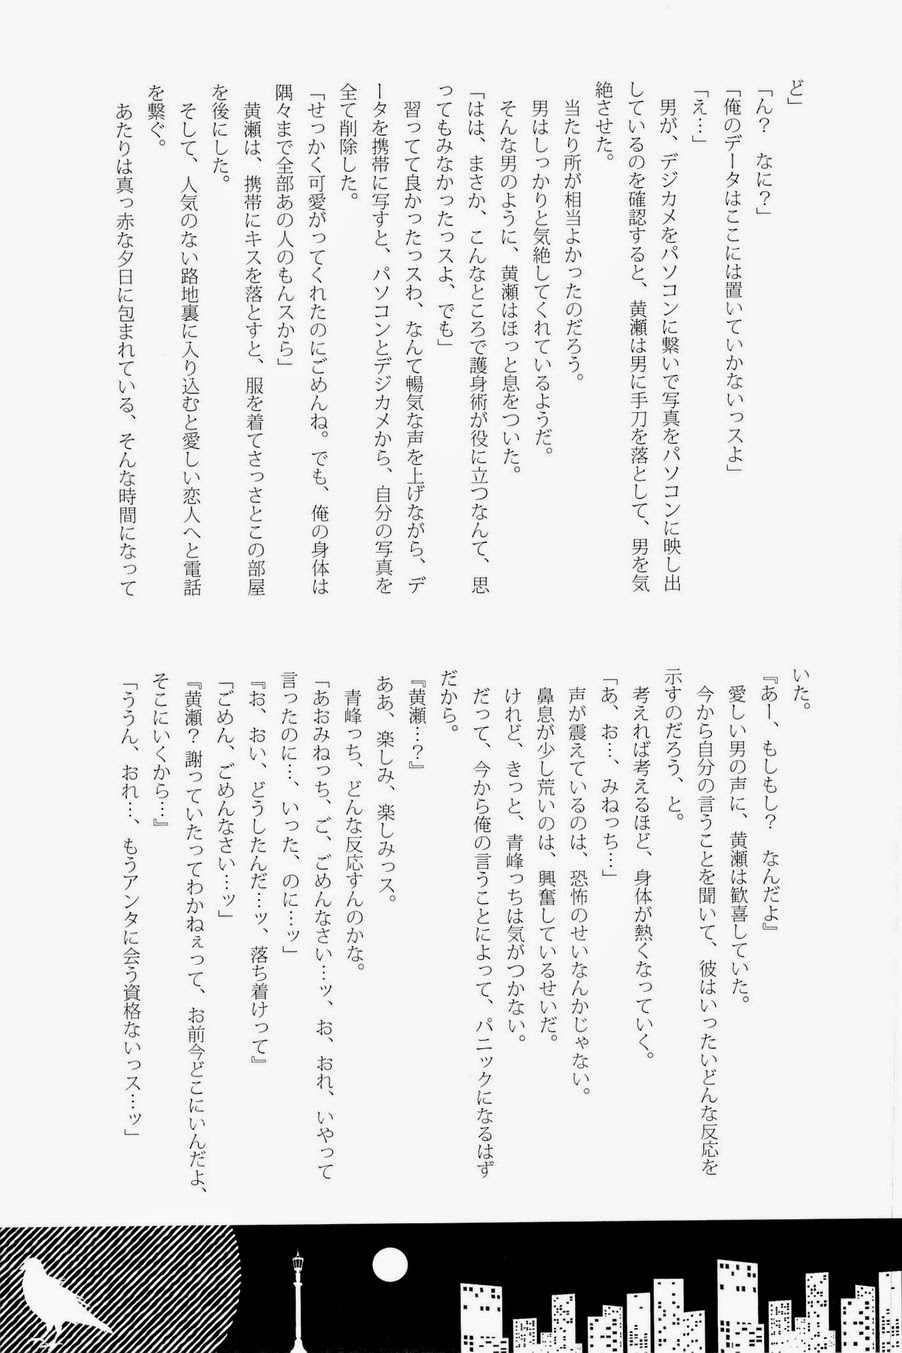 ど」
「ん?　なに?」
「俺のデータはここには置いていかないっスよ」
「え…」
男が、デジカメをパソコンに繋いで写真をパソコンに映し出
しているのを確認すると、黄瀬は男に手刀を落として、男を気
絶させた。
当たり所が相当よかったのだろう。
男はしっかりと気絶してくれているようだ。
そんな男のように、黄瀬はほっと息をついた。
「はは、まさか、こんなところで護身術が役に立つなんて、思
ってもみなかったっスよ、でも」
習ってて良かったっスわ、なんて暢気な声を上げながら、デ
ータを携帯に写すと、パソコンとデジカメから、自分の写真を
全て削除した。
「せっかく可愛がってくれたのにごめんね。でも、俺の身体は
隅々まで全部あの人のもんスから」
黄瀬は、携帯にキスを落とすと、服を着てさっさとこの部屋
を後にした。
そして、人気のない路地裏に入り込むと愛しい恋人へと電話
を繋ぐ。
あたりは真っ赤な夕日に包まれている、そんな時間になって
いた。
『あー、もしもし?　なんだよ』
愛しい男の声に、黄瀬は歓喜していた。
今から自分の言うことを聞いて、彼はいったいどんな反応を
示すのだろう、と。
考えれば考えるほど、身体が熱くなっていく。
「あ、お…、みねっち…」
声が震えているのは、恐怖のせいなんかじゃない。
鼻息が少し荒いのは、興奮しているせいだ。
けれど、きっと、青峰っちは気がつかない。
だって、今から俺の言うことによって、パニックになるはず
だから。
『黄瀬…?』
ああ、楽しみ、楽しみっス。
青峰っち、どんな反応すんのかな。
「あおみねっち、ご、ごめんなさい…ッ、お、おれ、いやって
言ったのに…、いった、のに…ッ」
『お、おい、どうしたんだ…ッ、落ち着けって』
「ごめん、ごめんなさい…ッ」
『黄瀬? 謝っていたってわかねぇって、お前今どこにいんだよ、
そこにいくから…』
「ううん、おれ…、もうアンタに会う資格ないっス…ッ」